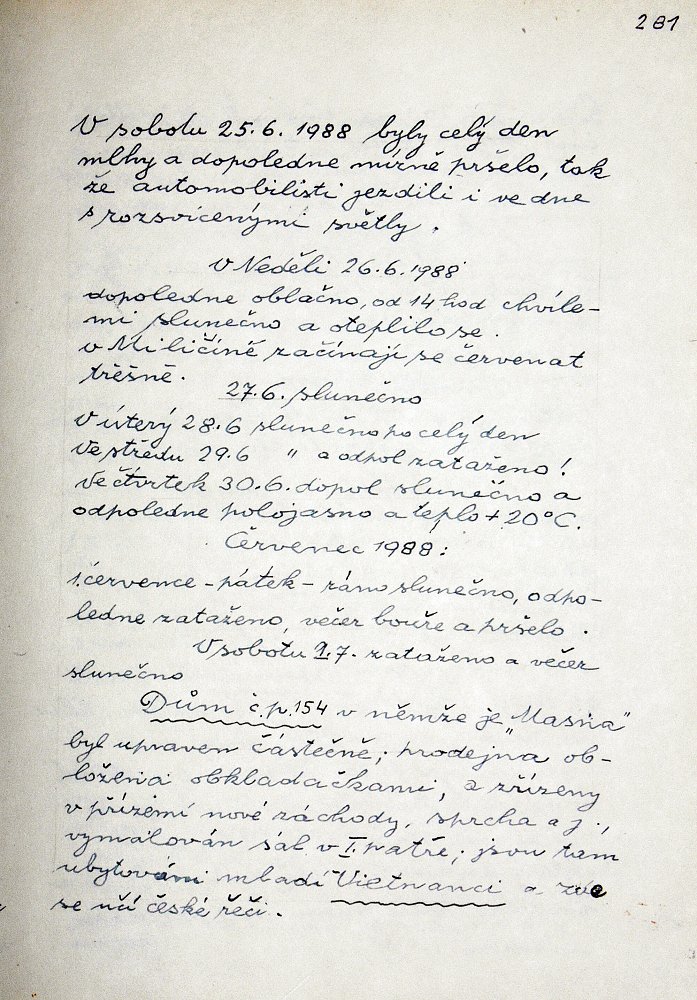 281
V sobotu 25.6. 1988 byly celý den
mlhy a dopoledne mírně pršelo, tak
že automobilisti jezdili i ve dne
s rozsvícenými světly.
V Neděli 26.6.1988
dopoledne oblačno, od 14 hod chvíle-
mi slunečno a oteplilo se.
v Miličíně začínají se červenat
třěšně.
27.6. slunečno
V úterý 28.6 slunečno po celý den
Ve středu 29.6 " a odpol zataženo!
Ve čtvrtek 30.6. dopol slunečno a
odpoledne polojasno a teplo + 20°C.
Červenec 1988:
1. července - pátek - ráno slunečno, odpo-
ledne zataženo, večer bouře a pršelo.
V sobotu 2.7. zataženo a večer
slunečno
Dům č.p. 154 v němže je „Masna"
byl upraven částečně; prodejna ob-
ložena obkladačkami, a zřízeny
v přízemí nové záchody, sprcha a j.,
vymalován sál v I. patře; jsou tam
ubytováni mladí Vietnamci a
se učí české řeči.